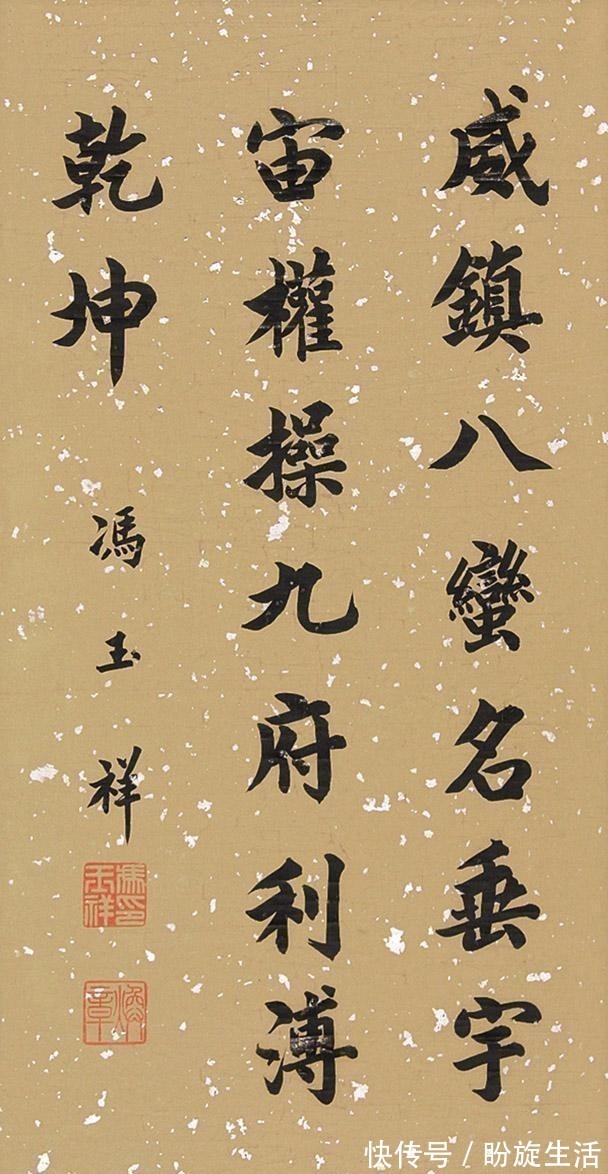 威鎮八蠻名垂宇
宙權操九府利溥
乾坤
馮玉祥
馮玉祥印
煥章
快传号/盼旋生活